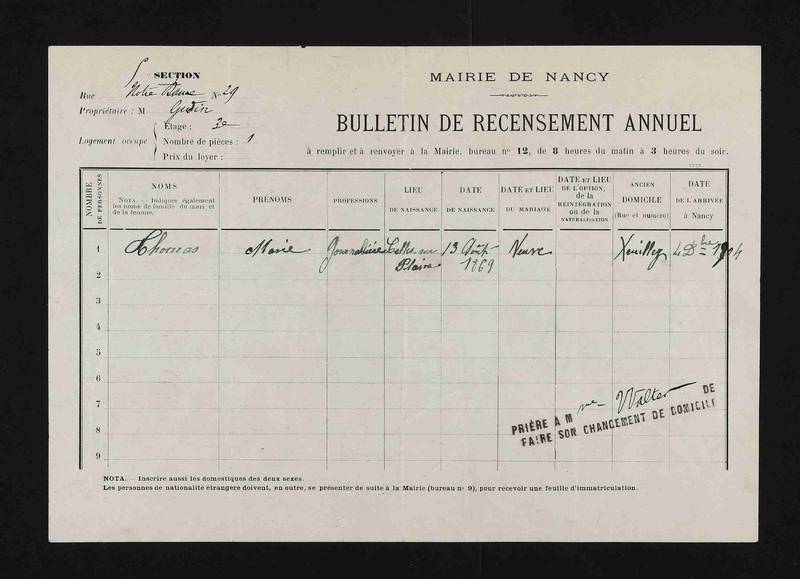 SECTION
Rue Notre Dame N° 29
Propriétaire : M
Étage : 3e
Logement occupé
Nombre de pièces : 1
Prix du loyer :
MAIRIE DE NANCY
BULLETIN DE RECENSEMENT ANNUEL
à remplir et à renvoyer à la Mairie, bureau n° 12, de 8 heures du matin à 3 heures du soir.
NOMBRE DE PERSONNES
NOMS
NOTA. — Indiquez également les noms de famille du mari et de la femme.
PRÉNOMS
PROFESSIONS
LIEU DE NAISSANCE
DATE DE NAISSANCE
DATE ET LIEU DU MARIAGE
DATE ET LIEU DE L'OPTION, de la RÉINTÉGRATION ou de la NATURALISATION
ANCIEN DOMICILE (Rue et numéro)
DATE DE L'ARRIVÉE à Nancy
1 Thomas Marie Journalière Celles sur Plaine 13 Août 1869 Veuve Xeuilley 4 Dbre 1904
2
3
4
5
6
7
8
9
PRIÈRE A Mme Walter DE
FAIRE SON CHANGEMENT DE DOMICILE
NOTA. — Inscrire aussi les domestiques des deux sexes.
Les personnes de nationalité étrangère doivent, en outre, se présenter de suite à la Mairie (bureau n° 9), pour recevoir une feuille d'immatriculation.